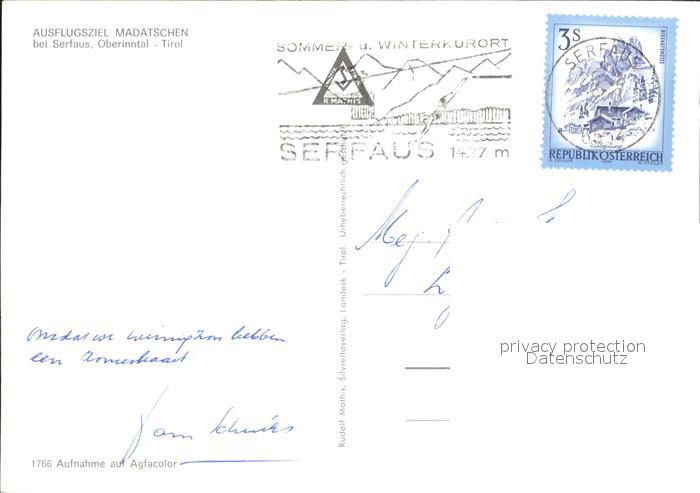 AUSFLUGSZIEL MADATSCHEN
bei Serfaus, Oberinntal - Tirol
SOMMER- u. WINTERKURORT
R. MATHIS
SERFAUS 1427 m
3 S
SERFAUS
REPUBLIK ÖSTERREICH
Rudolf Mathis, Silvrettaverlag, Landeck - Tirol. Urheberrechtlich geschützt
Omdat we weinig zon hebben
een zomerkaart
privacy protection
Datenschutz
1766 Aufnahme auf Agfacolor